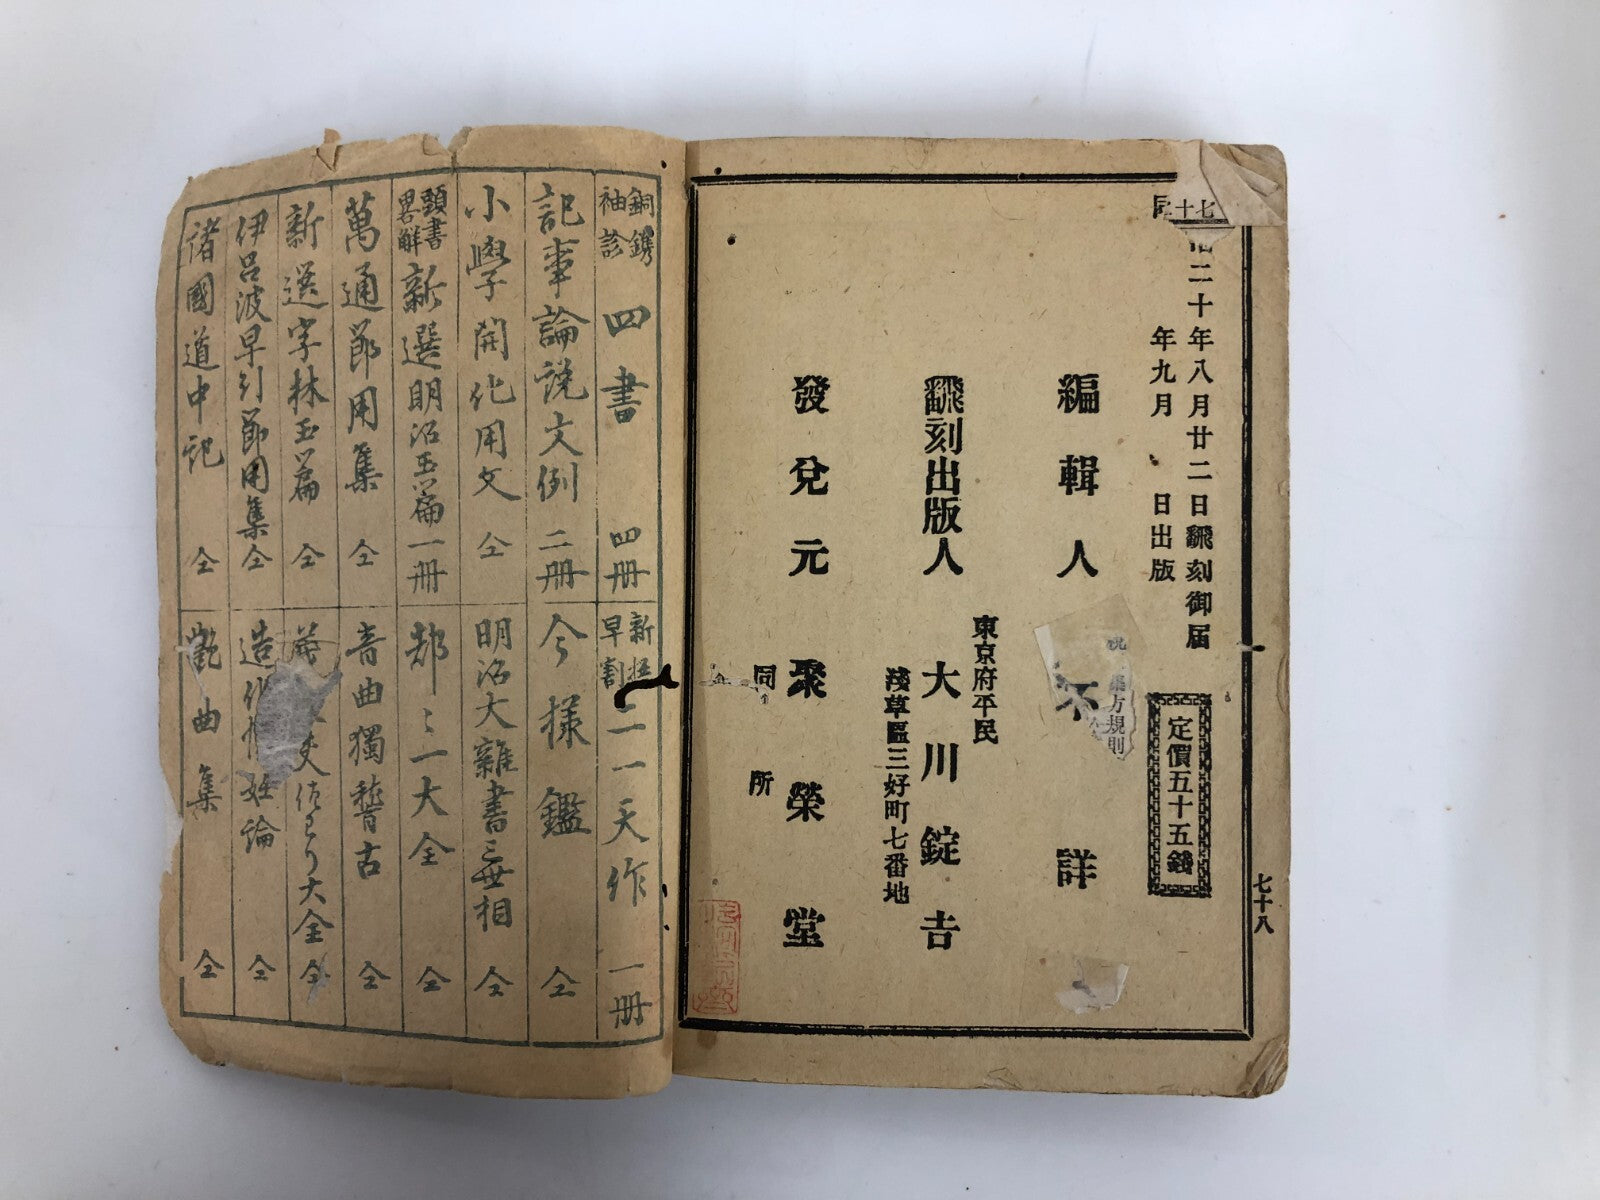 七十
治二十年八月廿二日飜刻御届
同年九月 日出版
定價五十五錢
編輯人 不詳
東京府平民
飜刻出版人 大川錠吉
淺草區三好町七番地
發兌元 聚榮堂
同所
七十八
銅鐫袖珍 四書 四册
記事論説文例 二册
小學開化用文 仝
頭書畧解 新選明治玉篇 一册
萬通節用集 仝
新選字林玉篇 仝
伊呂波早引節用集 仝
諸國道中記 仝
早割 二一天作 一册
今様鑑 仝
明治大雜書三世相 仝
都々一大全 仝
音曲獨稽古 仝
大全 仝
造化 妊論 仝
歡曲集 仝